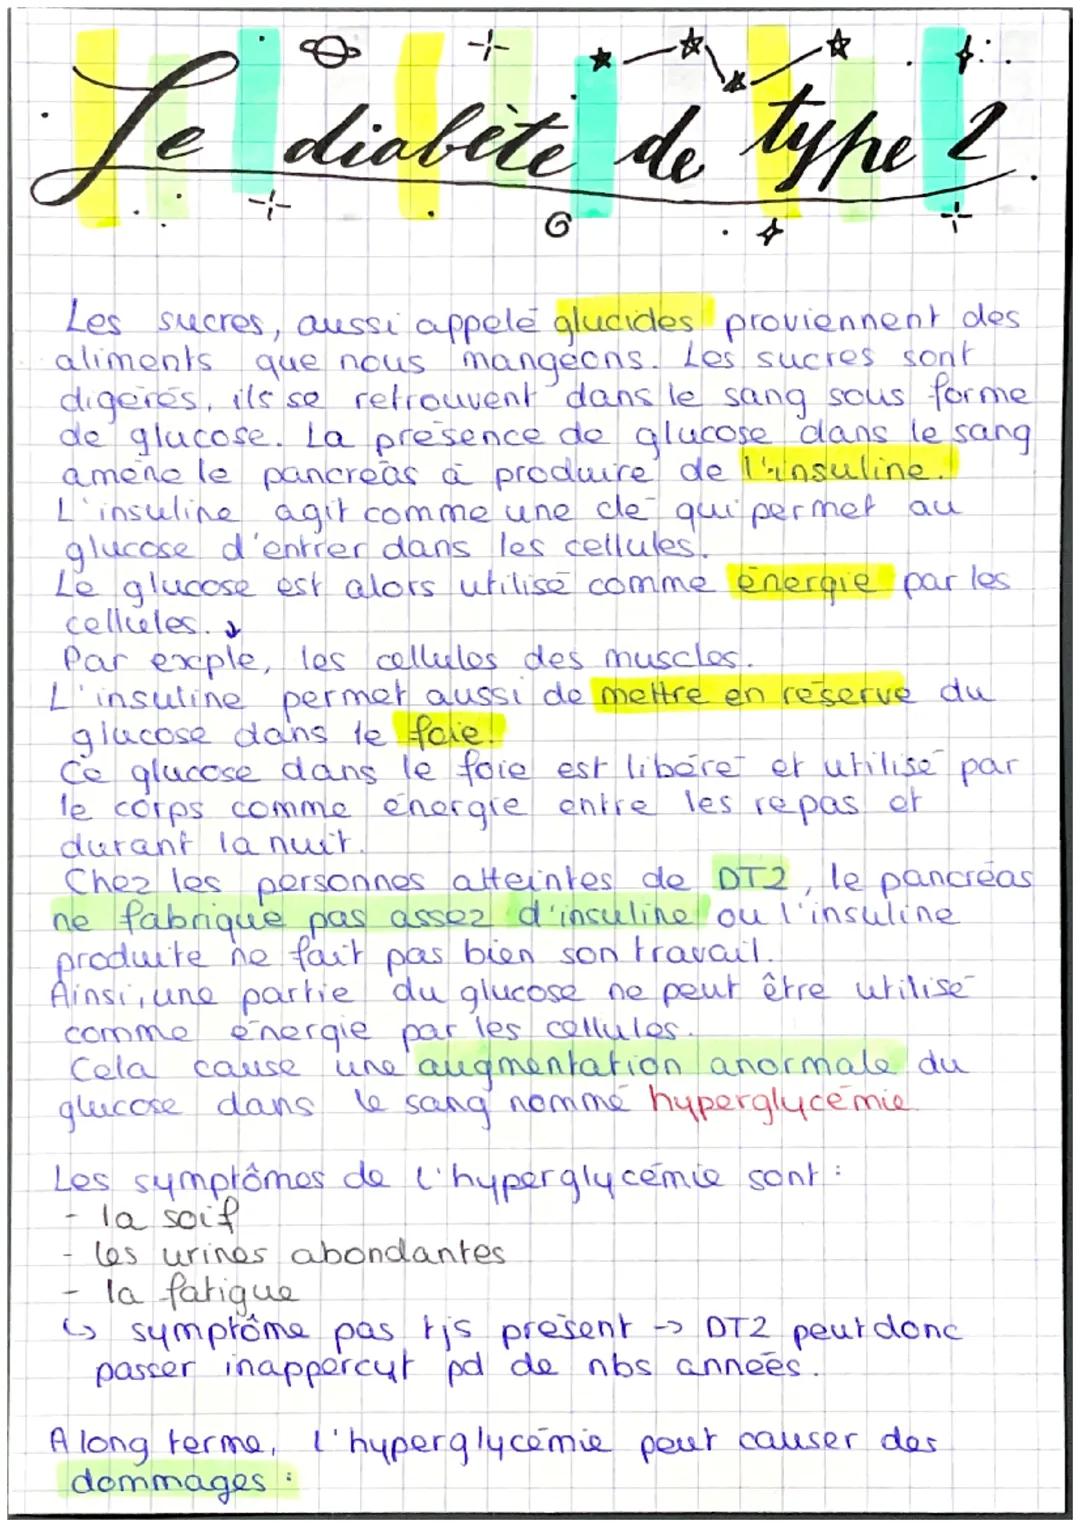 Le diabète de type 2
Les sucres, aussi appelé glucides proviennent des
aliments que nous mangeons. Les sucres sont
digérés, ils se retrouvent dans le sang sous forme
de glucose. La présence de glucose dans le sang
amène le pancréas à produire de l'insuline.
L'insuline agit comme une clé qui permet au
glucose d'entrer dans les cellules.
Le glucose est alors utilisé comme énergie par les
cellules. ↓
Par exple, les cellules des muscles.
L'insuline permet aussi de mettre en réserve du
glucose dans le foie.
Ce glucose dans le foie est libéré et utilisé par
le corps comme énergie entre les repas et
durant la nuit.
Chez les personnes atteintes de DT2, le pancréas
ne fabrique pas assez d'insuline ou l'insuline
produite ne fait pas bien son travail.
Ainsi, une partie du glucose ne peut être utilisé
comme énergie par les cellules.
Cela cause une augmentation anormale du
glucose dans le sang nommé hyperglycémie
Les symptômes de l'hyperglycémie sont :
- la soif
- les urines abondantes
- la fatigue
↳ symptôme pas tjs présent → DT2 peut donc
passer inappercut pd de nbs années.
A long terme, l'hyperglycémie peut causer des
dommages :